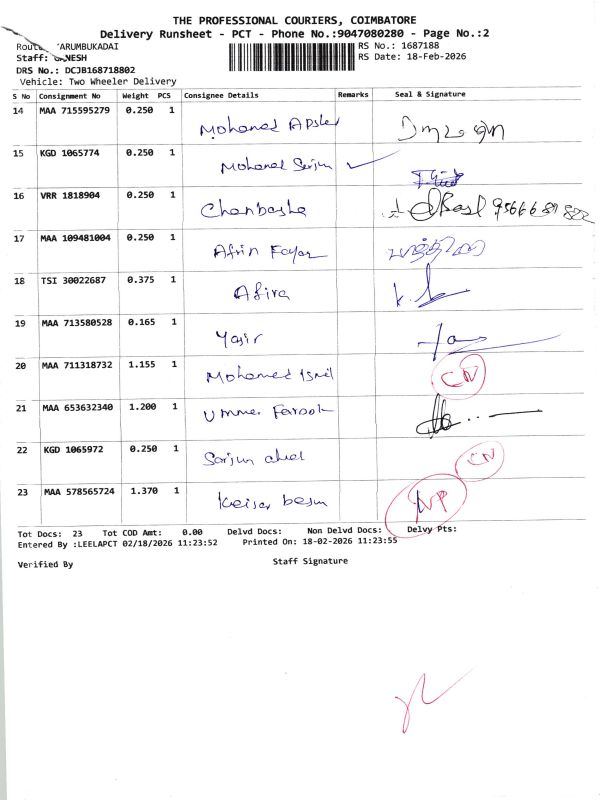 THE PROFESSIONAL COURIERS, COIMBATORE
Delivery Runsheet - PCT - Phone No.:9047080280 - Page No.:2
ARUMBUKADAI
RS No.: 1687188
Staff: GANESH
RS Date: 18-Feb-2026
DRS No.: DCJB168718802
Vehicle: Two Wheeler Delivery
S No Consignment No Weight PCS Consignee Details Remarks Seal & Signature
14 MAA 715595279 0.250 1 Mohamed
15 KGD 1065774 0.250 1 Mohamed ✓
16 VRR 1818904 0.250 1 Chanbasha
17 MAA 109481004 0.250 1 Afrin
18 TSI 30022687 0.375 1 Afira
19 MAA 713580528 0.165 1 Yasir
20 MAA 711318732 1.155 1 Mohamed Ismil CN
21 MAA 653632340 1.200 1 Ummer Farook
22 KGD 1065972 0.250 1 CN
23 MAA 578565724 1.370 1 NP
Tot Docs: 23 Tot COD Amt: 0.00 Delvd Docs: Non Delvd Docs: Delvy Pts:
Entered By :LEELAPCT 02/18/2026 11:23:52 Printed On: 18-02-2026 11:23:55
Verified By Staff Signature